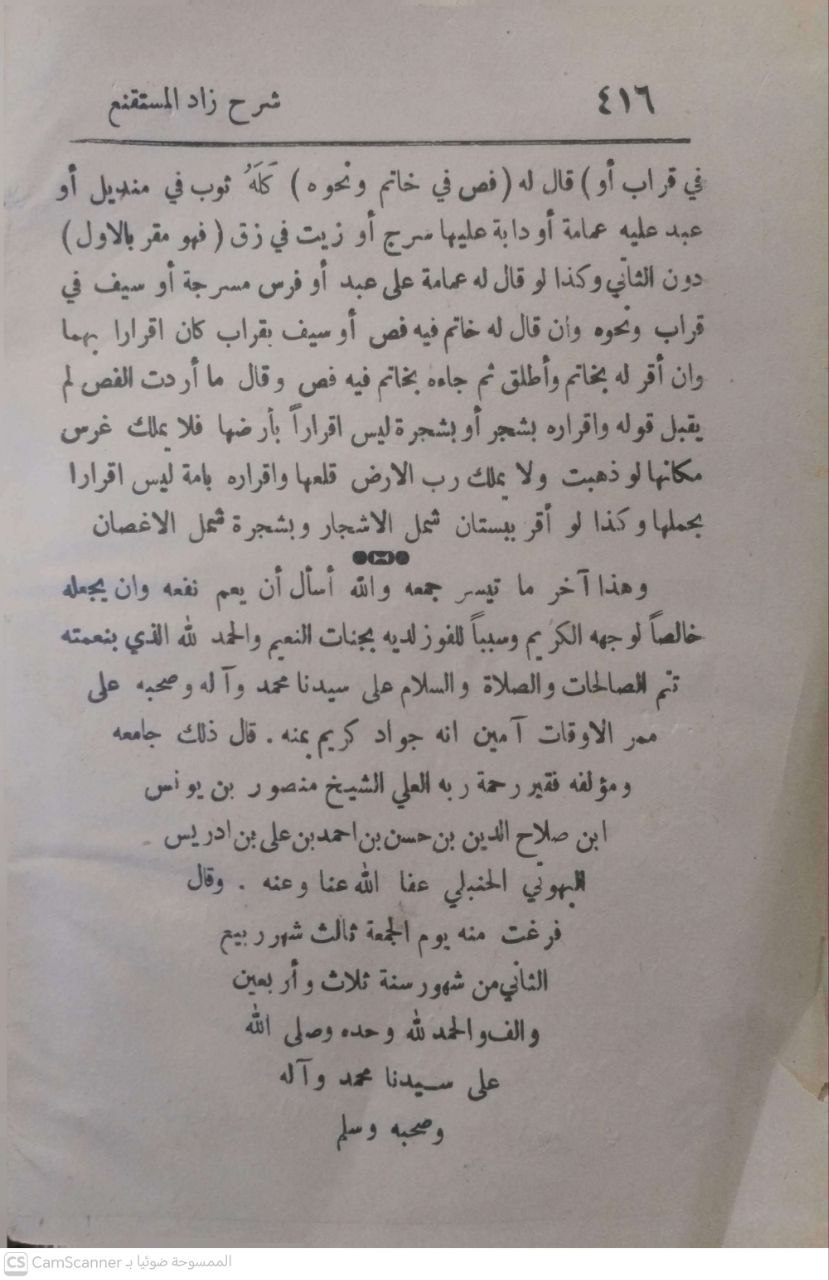 ٤١٦ شرح زاد المستقنع
في قراب أو) قال له (فص في خاتم ونحوه) كَلَهُ ثوب في منديل أو
عبد عليه عمامة أو دابة عليها سرج أو زيت في زق (فهو مقر بالاول)
دون الثاني وكذا لو قال له عمامة على عبد أو فرس مسرجة أو سيف في
قراب ونحوه وان قال له خاتم فيه فص أو سيف بقراب كان اقرارا بهما
وان أقر له بخاتم وأطلق ثم جاءه بخاتم فيه فص وقال ما أردت الفص لم
يقبل قوله واقراره بشجر أو بشجرة ليس اقراراً بأرضها فلا يملك غرس
مكانها لو ذهبت ولا يملك رب الارض قلعها واقراره بامة ليس اقرارا
بحملها وكذا لو أقر ببستان شمل الاشجار وبشجرة شمل الاغصان
وهذا آخر ما تيسر جمعه والله أسأل أن يعم نفعه وان يجعله
خالصاً لوجهه الكريم وسبباً للفوز لديه بجنات النعيم والحمد لله الذي بنعمته
تتم الصالحات والصلاة والسلام على سيدنا محمد وآله وصحبه على
ممر الاوقات آمين انه جواد كريم بمنه . قال ذلك جامعه
ومؤلفه فقير رحمة ربه العلي الشيخ منصور بن يونس
ابن صلاح الدين بن حسن بن احمد بن على بن ادريس
البهوتي الحنبلي عفا الله عنا وعنه . وقال
فرغت منه يوم الجمعة ثالث شهر ربيع
الثاني من شهور سنة ثلاث وأربعين
والف والحمد لله وحده وصلى الله
على سيدنا محمد وآله
وصحبه وسلم
CS CamScanner الممسوحة ضوئيا بـ